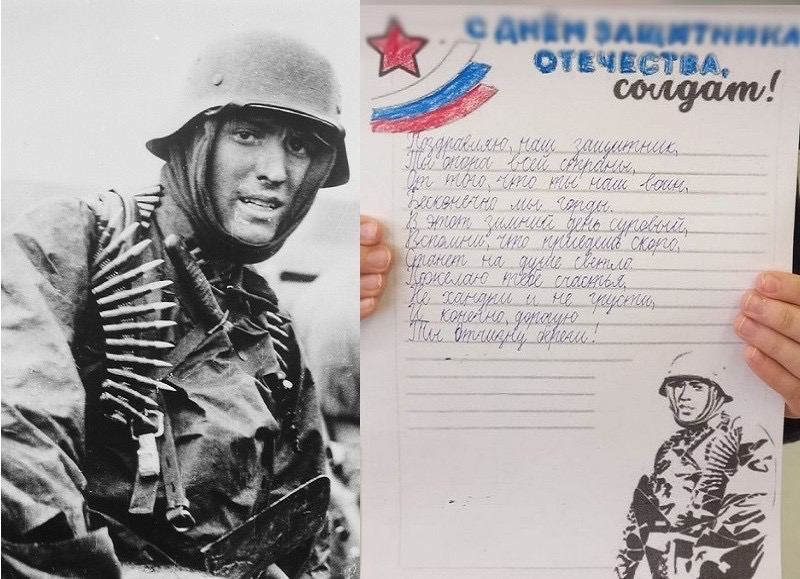 С ДНЁМ ЗАЩИТНИКА
ОТЕЧЕСТВА,
солдат!
Поздравляю, наш защитник,
Ты опора всей страны,
От того, что ты наш воин,
Бесконечно мы горды.
В этот зимний день суровый,
Вспомни, что приедешь скоро,
Станет на душе светло.
Пожелаю тебе счастья,
Не хандри и не грусти,
И конечно, дорогую
Ты отчизну береги!